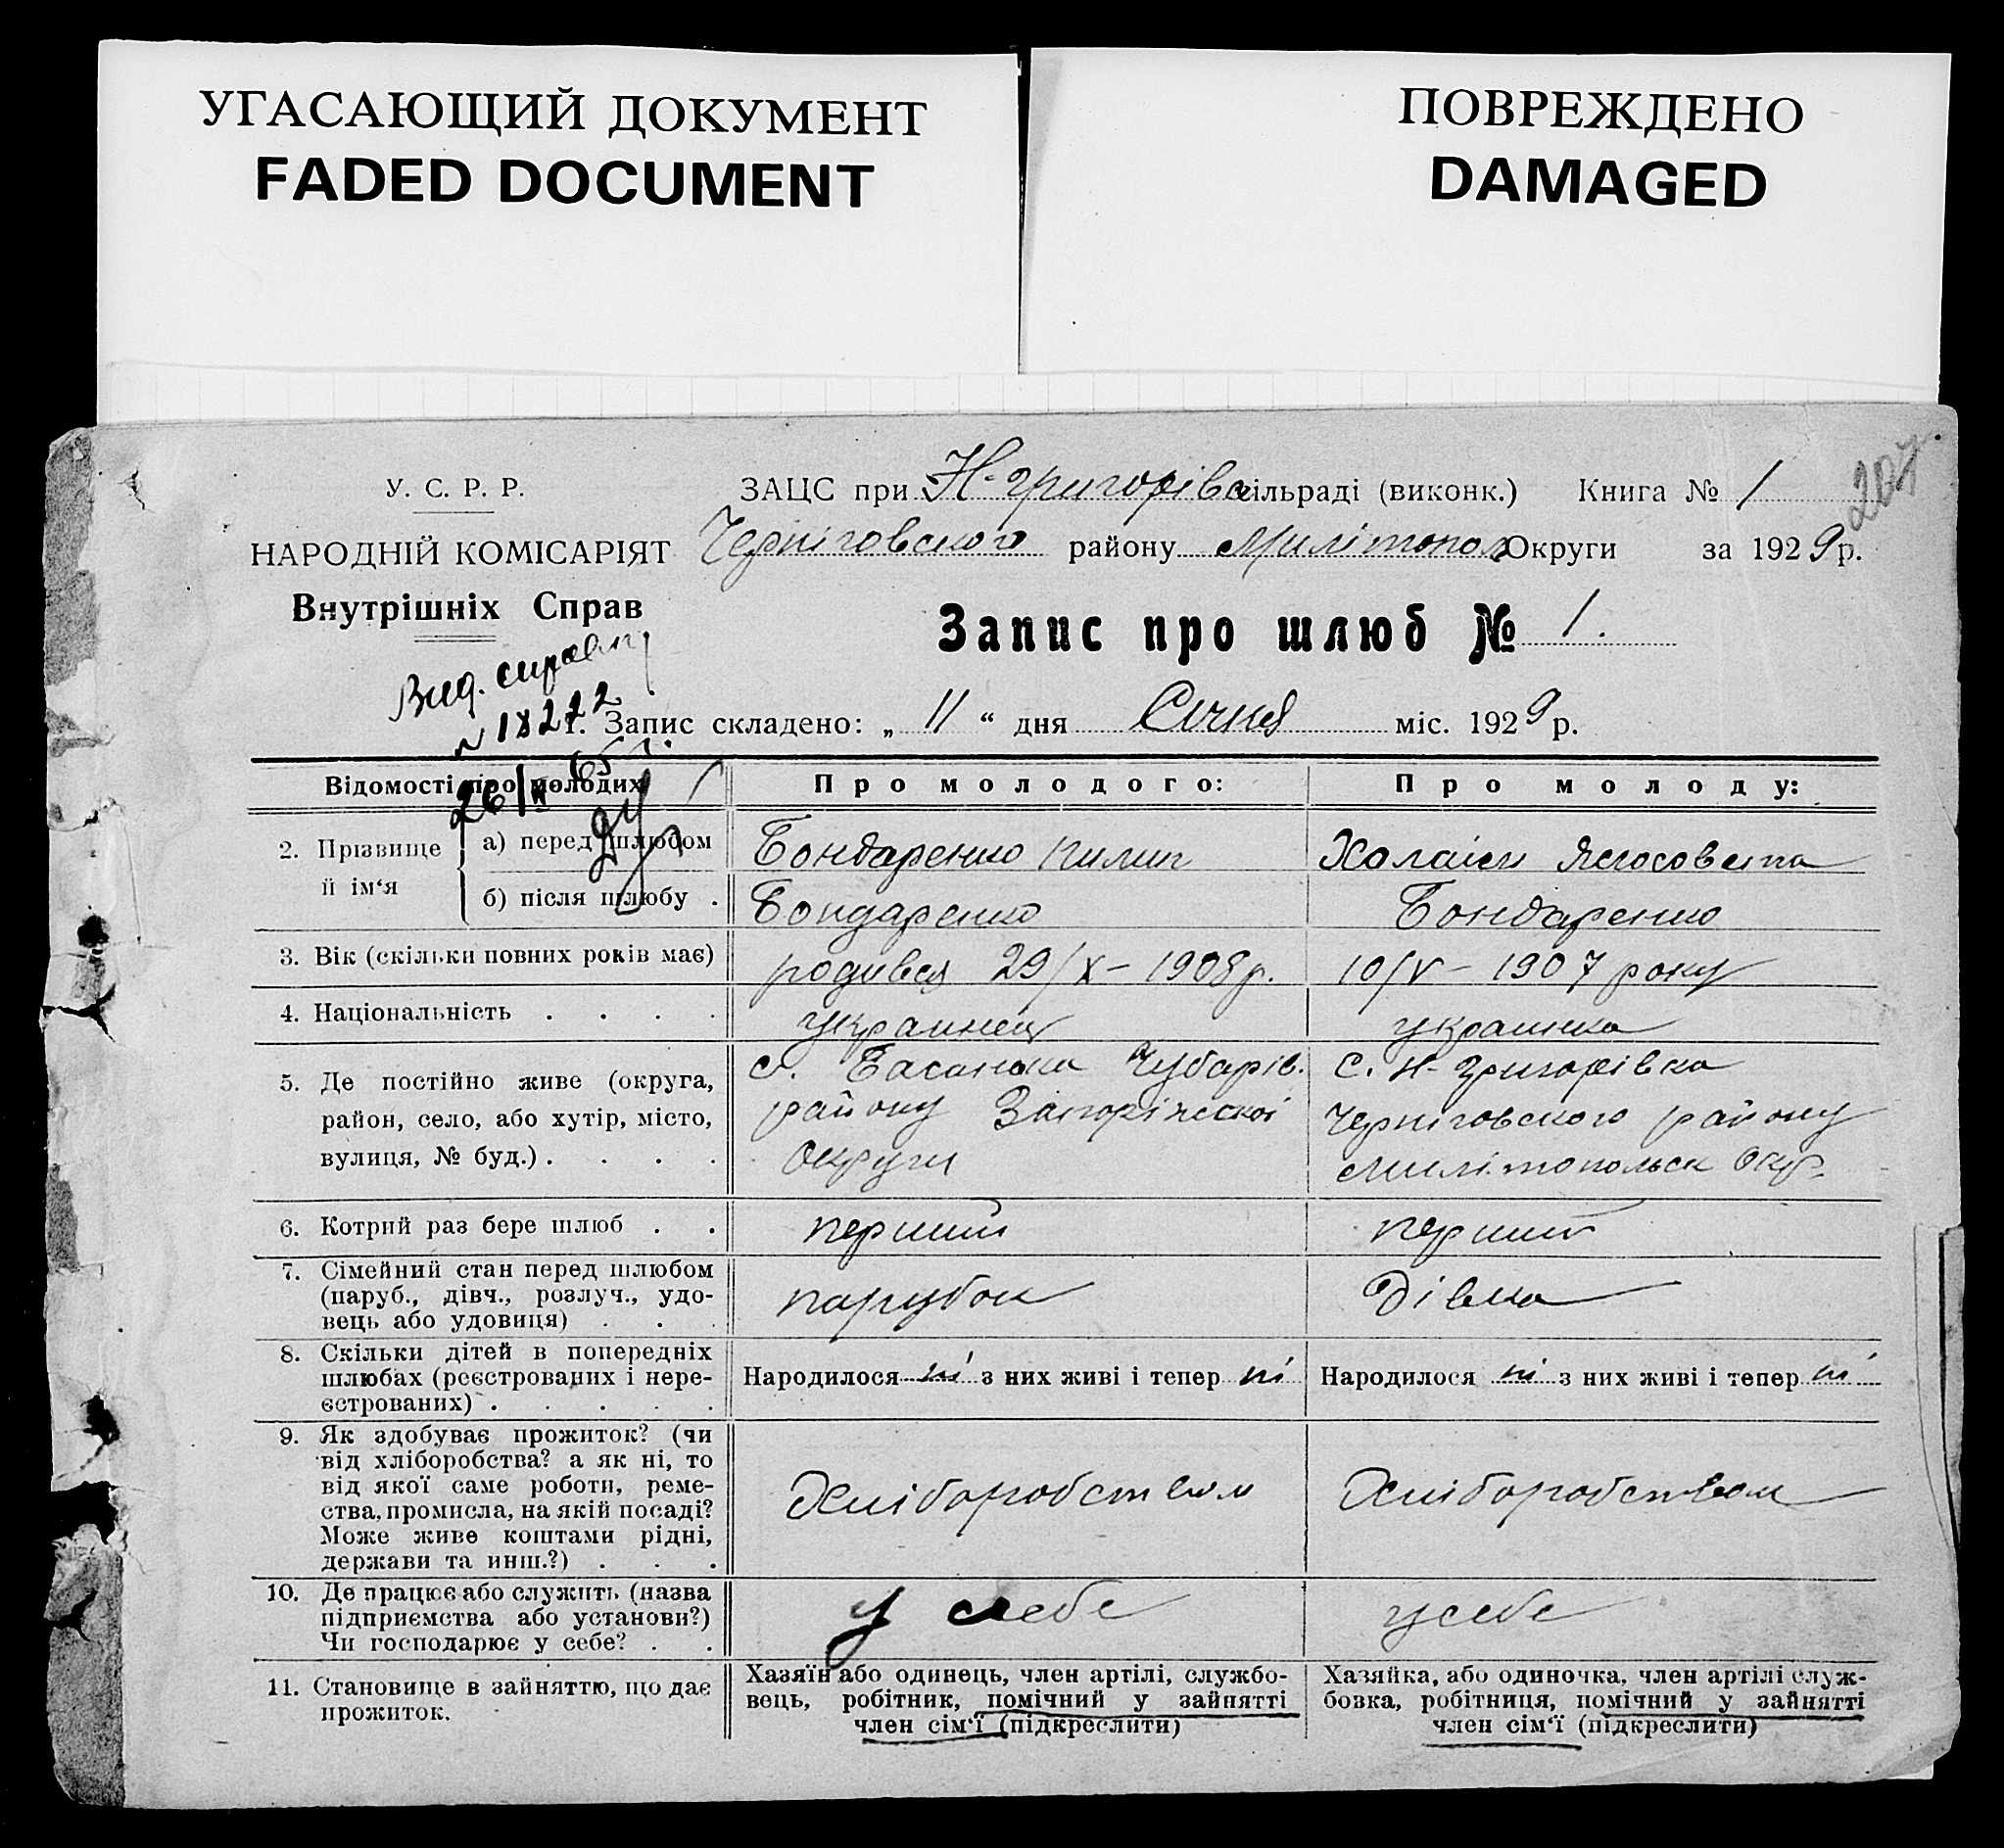 УГАСАЮЩИЙ ДОКУМЕНТ
FADED DOCUMENT
ПОВРЕЖДЕНО
DAMAGED
207
У. С. Р. Р.
НАРОДНІЙ КОМІСАРІЯТ
Внутрішніх Справ
ЗАЦС при Н-григорівс сільраді (виконк.) Книга № 1
Черніговского району Милітопол Округи за 1929 р.
Запис про шлюб № 1.
Вид. справку
№ 18222
26/
1. Запис складено: „ 11 “ дня Січня міс. 1929 р.
Відомості про молодих
Про молодого:
Про молоду:
2. Прізвище й ім‘я
а) перед шлюбом
Бондаренко Пилип
Холаім Ялосовета
б) після шлюбу .
Бондаренко
Бондаренко
3. Вік (скільки повних років має)
родився 29/X – 1908 р.
10/V – 1907 року
4. Національність . . . .
украинец
украинка
5. Де постійно живе (округа,
район, село, або хутір, місто,
вулиця, № буд.) . . . .
с. Басанька Чубарів.
району Запоріжскої
Округи
С. Н-Григорівка
Черніговского району
Милітопольск Окр.
6. Котрий раз бере шлюб . .
перший
перший
7. Сімейний стан перед шлюбом
(паруб., дівч., розлуч., удо-
вець або удовиця) . .
парубок
Дівка
8. Скільки дітей в попередніх
шлюбах (реєстрованих і нере-
єстрованих) . . . . .
Народилося ні з них живі і тепер ні
Народилося ні з них живі і тепер ні
9. Як здобуває прожиток? (чи
від хліборобства? а як ні, то
від якої саме роботи, реме-
ства, промисла, на якій посаді?
Може живе коштами рідні,
держави та инш.?) . . .
Хліборобством
Хліборобством
10. Де працює або служить (назва
підприємства або установи?)
Чи господарює у себе? . .
у себе
у себе
11. Становище в зайняттю, що дає
прожиток.
Хазяїн або одинець, член артілі, службо-
вець, робітник, помічний у зайнятті
член сім‘ї (підкреслити)
Хазяйка, або одиночка, член артілі служ-
бовка, робітниця, помічний у зайнятті
член сім‘ї (підкреслити)